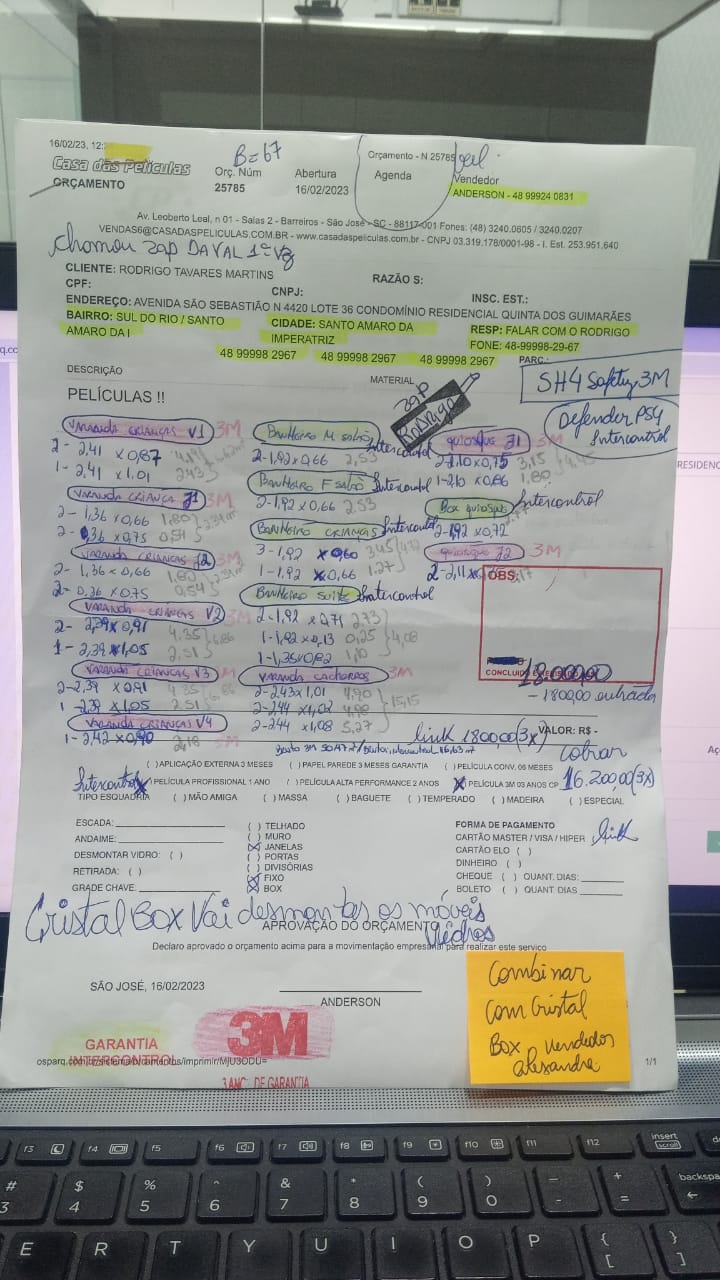 16/02/23, 12:
B=67
Orçamento - N 25785
Casa das Películas
ORÇAMENTO
Orç. Núm
25785
Abertura
16/02/2023
Agenda
Vendedor
ANDERSON - 48 99924 0831
Av. Leoberto Leal, n 01 - Salas 2 - Barreiros - São José - SC - 88117-001 Fones: (48) 3240.0605 / 3240.0207
VENDAS6@CASADASPELICULAS.COM.BR - www.casadaspeliculas.com.br - CNPJ 03.319.178/0001-98 - I. Est. 253.951.640
Chamou zap DAVAL 1ª Vz
CLIENTE: RODRIGO TAVARES MARTINS
RAZÃO S:
CPF:
CNPJ:
INSC. EST.:
ENDEREÇO: AVENIDA SÃO SEBASTIÃO N 4420 LOTE 36 CONDOMÍNIO RESIDENCIAL QUINTA DOS GUIMARÃES
BAIRRO: SUL DO RIO / SANTO AMARO DA I
CIDADE: SANTO AMARO DA IMPERATRIZ
RESP: FALAR COM O RODRIGO
FONE: 48-99998-29-67
48 99998 2967 48 99998 2967 48 99998 2967
PARC.:
DESCRIÇÃO
MATERIAL
PELÍCULAS !!
zap
Rodrigo
SH4 Safety 3M
Defender PS4
Intercontrol
VARANDA CRIANÇAS V1 3M
2- 2,41 x 0,87
1- 2,41 x 1,01 2,43
VARANDA CRIANÇA J1 3M
2- 1,36 x 0,66 1,80
2- 0,36 x 0,75 0,54
VARANDA CRIANÇAS J2 3M
2- 1,36 x 0,66 1,80
2- 0,36 x 0,75 0,54
VARANDA CRIANÇAS V2 3M
2- 2,39 x 0,91 4,35
1- 2,39 x 1,05 2,51
6,86
VARANDA CRIANÇAS V3 3M
2- 2,39 x 0,91 4,35
1- 2,39 x 1,05 2,51
VARANDA CRIANÇAS V4
1- 2,42 x 0,90 2,18 3M
BANHEIRO M SALÃO Intercontrol
2- 1,92 x 0,66 2,53
BANHEIRO F SALÃO Intercontrol
2- 1,92 x 0,66 2,53
BANHEIRO CRIANÇAS Intercontrol
3- 1,92 x 0,60 3,45
1- 1,92 x 0,66 1,27
4,72
BANHEIRO SUITE Intercontrol
2- 1,92 x 0,71 2,73
1- 1,92 x 0,13 0,25
1- 1,35 x 0,82 1,10
4,08
VARANDA CACHORROS 3M
2- 2,43 x 1,01 4,90
2- 2,44 x 1,02 4,98
2- 2,44 x 1,08 5,27
15,15
QUIOSQUE J1 3M
2- 2,10 x 0,75 3,15
1- 2,10 x 0,86 1,80
Box quiosque Intercontrol
2- 1,92 x 0,72
QUIOSQUE J2 3M
OBS:
18.000,00
- 1800,00 entrada
link 1800,00 (3x)
VALOR: R$ -
cobrar
16.200,00 (3x)
( ) APLICAÇÃO EXTERNA 3 MESES ( ) PAPEL PAREDE 3 MESES GARANTIA ( ) PELÍCULA CONV. 06 MESES
Intercontrol (X) PELÍCULA PROFISSIONAL 1 ANO ( ) PELÍCULA ALTA PERFORMANCE 2 ANOS (X) PELÍCULA 3M 03 ANOS CP
TIPO ESQUADRIA ( ) MÃO AMIGA ( ) MASSA ( ) BAGUETE ( ) TEMPERADO ( ) MADEIRA ( ) ESPECIAL
ESCADA:
ANDAIME:
DESMONTAR VIDRO: ( )
RETIRADA: ( )
GRADE CHAVE.
( ) TELHADO
( ) MURO
(X) JANELAS
( ) PORTAS
( ) DIVISÓRIAS
(X) FIXO
(X) BOX
FORMA DE PAGAMENTO
link
CARTÃO MASTER / VISA / HIPER
CARTÃO ELO ( )
DINHEIRO ( )
CHEQUE ( ) QUANT. DIAS:
BOLETO ( ) QUANT. DIAS
Cristal Box Vai desmontar os móveis
Vidros
APROVAÇÃO DO ORÇAMENTO
Declaro aprovado o orçamento acima para a movimentação empresarial para realizar este serviço
SÃO JOSÉ, 16/02/2023
ANDERSON
Combinar
com Cristal
Box vendedor
alesandra
GARANTIA
INTERCONTROL
3M
3 ANOS DE GARANTIA
1/1
f3 f4 f5 f6 f7 f8 f9 f10 f11 f12 insert
# $ % & * ( ) _ + backspa
3 4 5 6 7 8 9 0 - =
E R T Y U I O P { }
[ ]